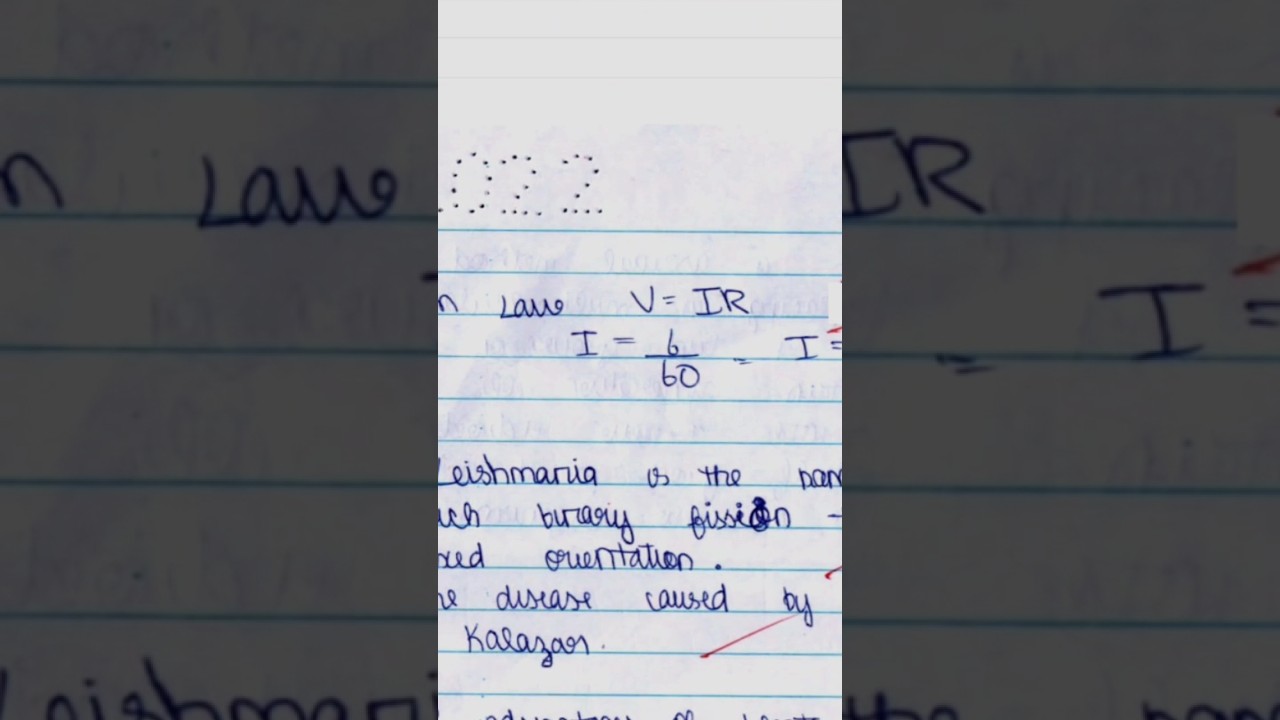 022
n Law V = IR
I = 6/60 = I =
Leishmania is the nam
uch binary fission -
xed orientation.
he disease caused by
Kalazar.
of